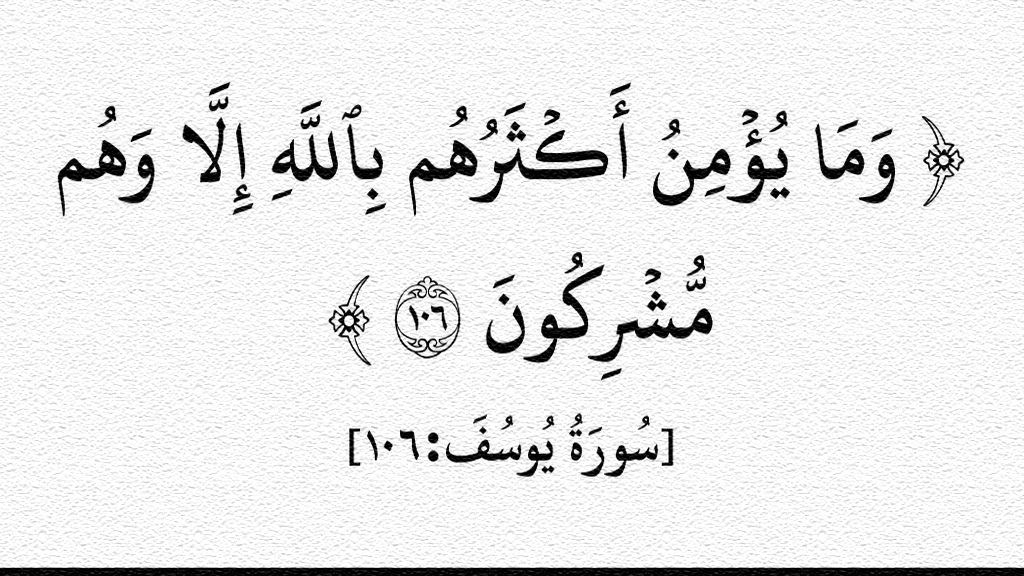 ﴿ وَمَا يُؤۡمِنُ أَكۡثَرُهُم بِٱللَّهِ إِلَّا وَهُم
مُّشۡرِكُونَ ١٠٦ ﴾
[سُورَةُ يُوسُفَ:١٠٦]